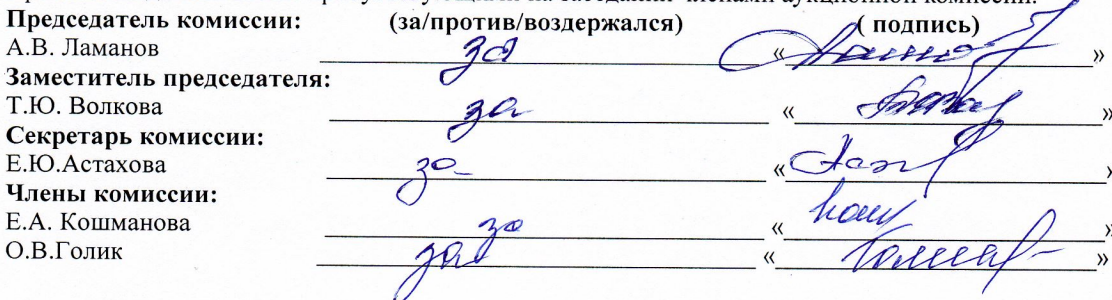 Председатель комиссии: (за/против/воздержался) ( подпись)
А.В. Ламанов за « »
Заместитель председателя:
Т.Ю. Волкова за « »
Секретарь комиссии:
Е.Ю.Астахова за « »
Члены комиссии:
Е.А. Кошманова за « »
О.В.Голик за « »